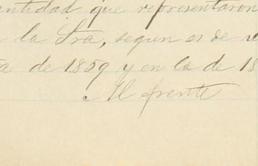 antidad que representaron
la Sra, segun es de
a de 1859 y en la de 18
Al frente